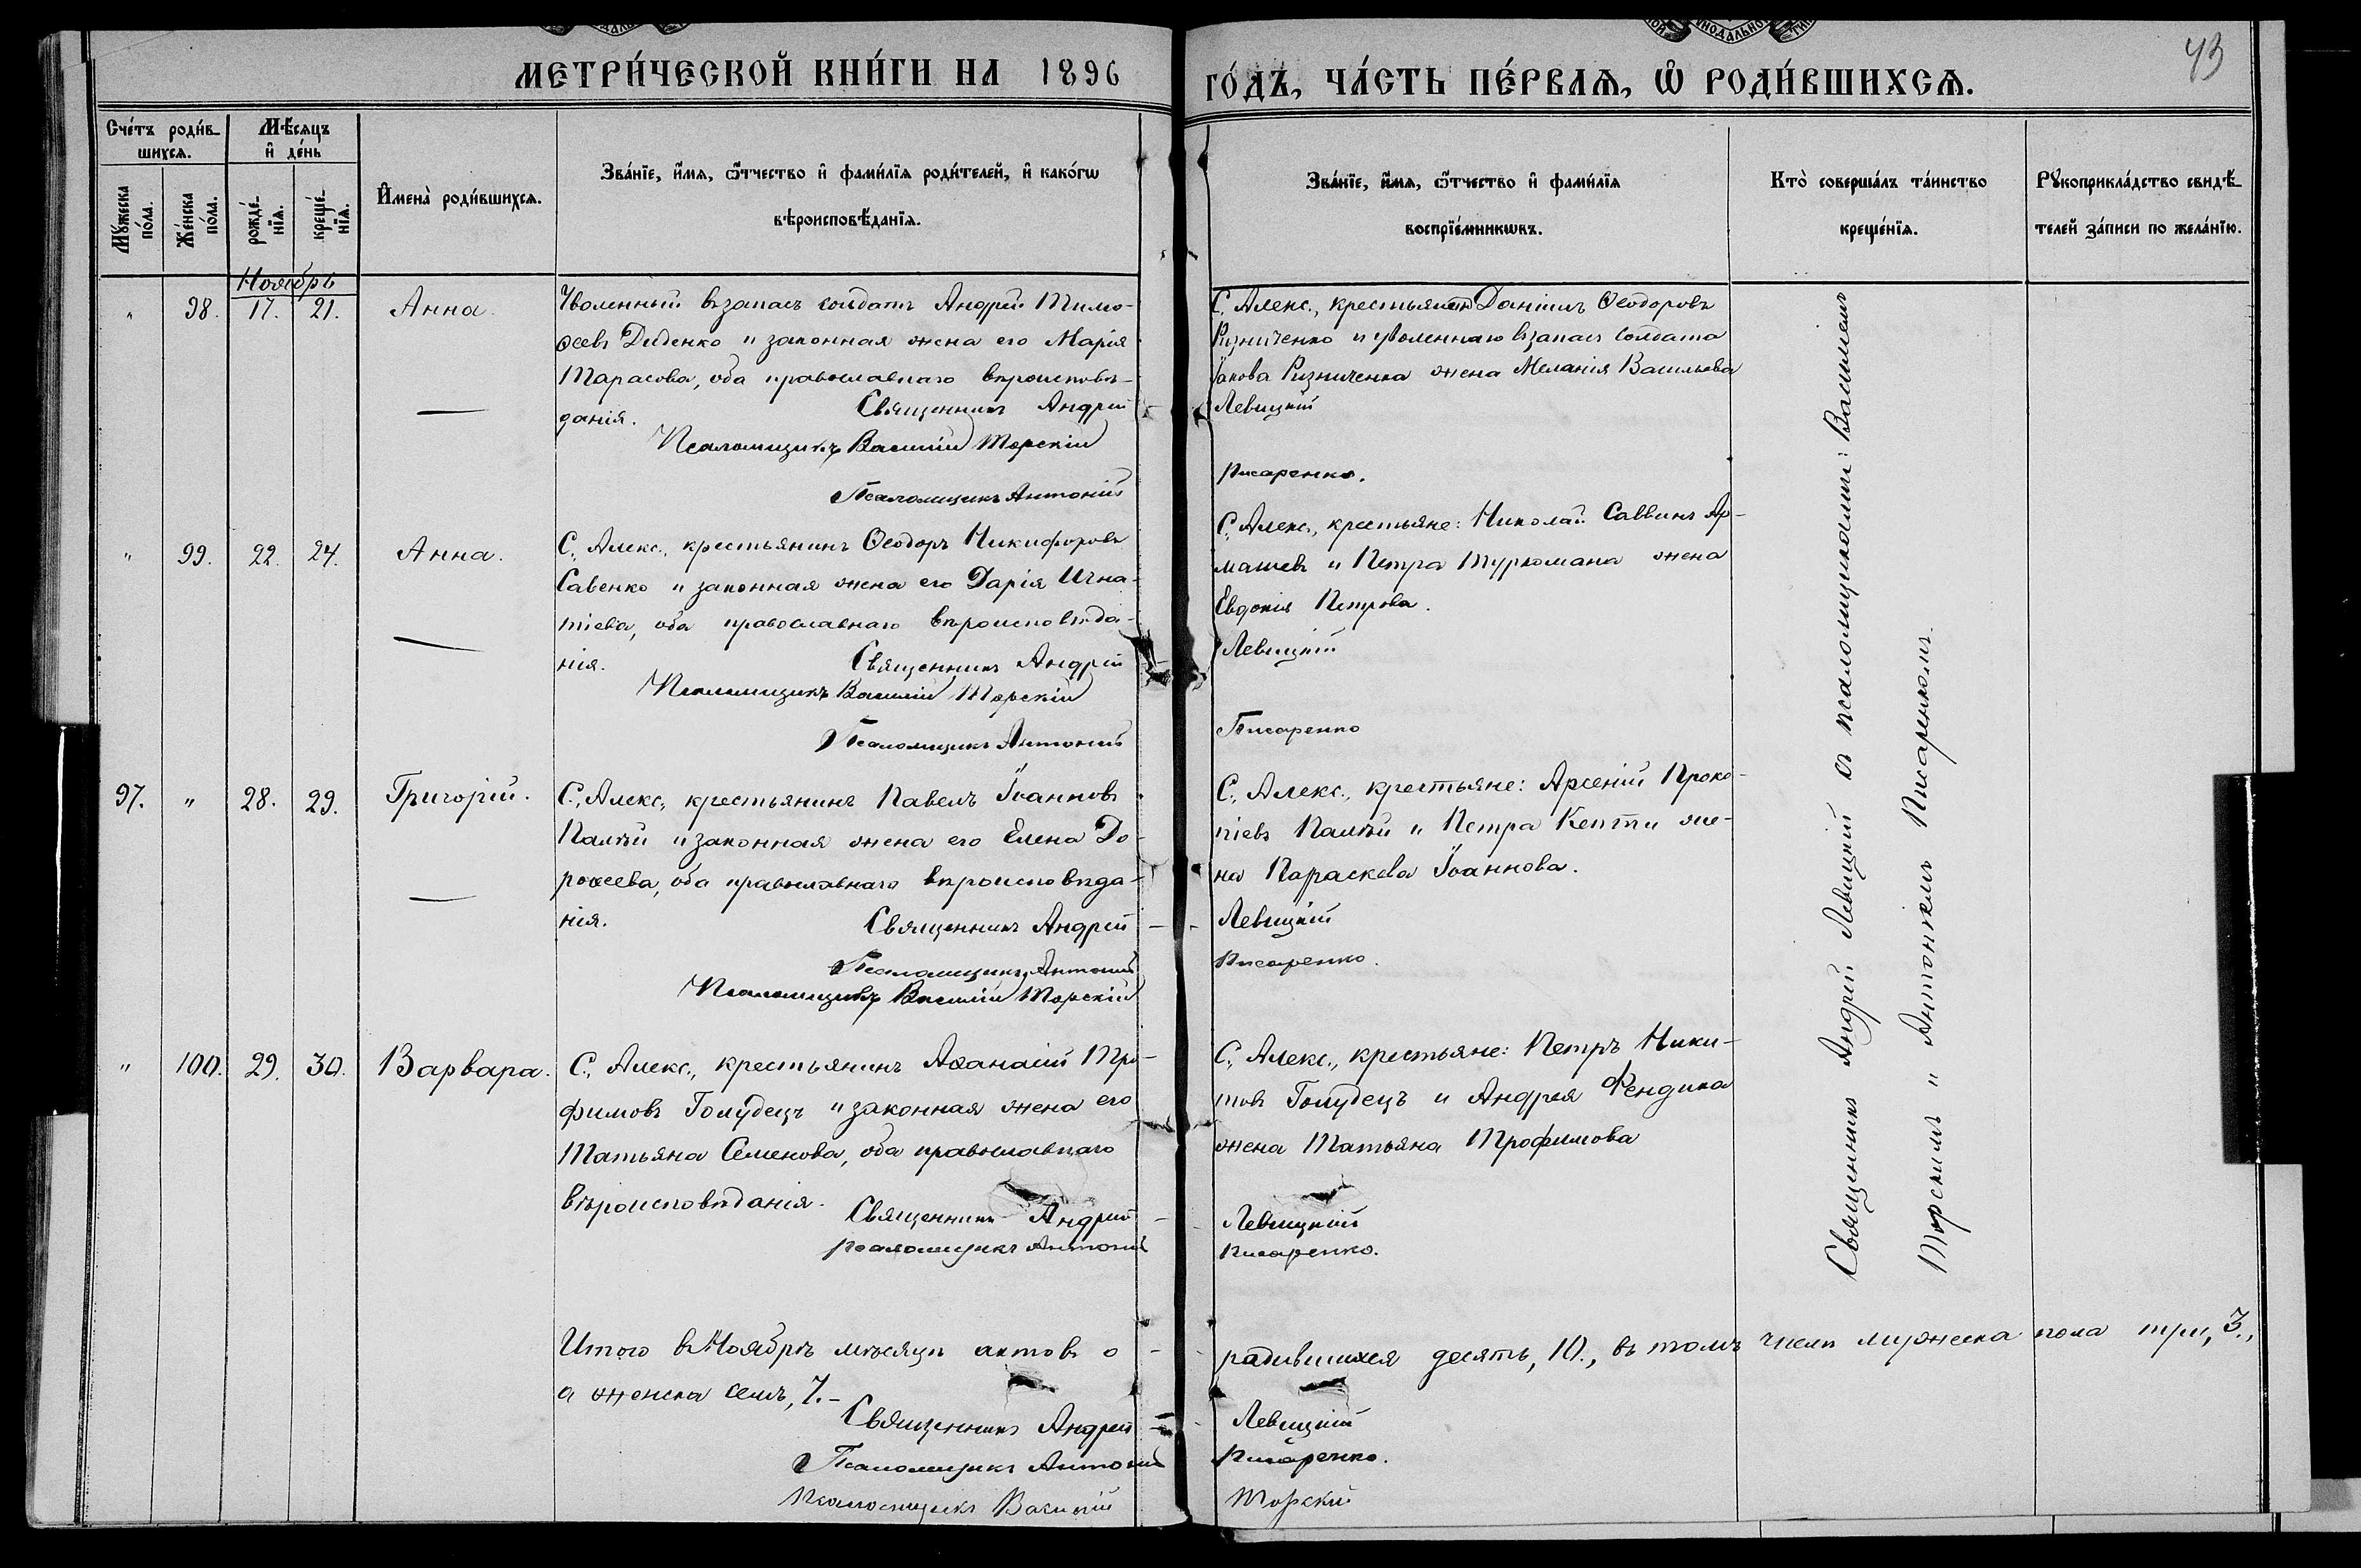 МЕТРИ́ЧЕСКОЙ КНИ́ГИ НА 1896 ГО́ДЪ, ЧА́СТЬ ПЕ́РВАѦ, Ѡ РОДИ́ВШИХСѦ.
43
Сче́тъ роди́в-
шихсѧ.
Мѣ́сѧцъ
и де́нь
Мꙋ́жеска
по́ла.
Же́нска
по́ла.
рожде́-
нїѧ.
креще́-
нїѧ.
И҆мена̀ роди́вшихсѧ.
Зва́нїе, и҆́мѧ, ѻ҆́тчество и҆ фами́лїѧ роди́телей, и҆ како́гѡ
вѣроисповѣ́данїѧ.
Зва́нїе, и҆́мѧ, ѻ҆́тчество и҆ фами́лїѧ
воспрїе́мникѡвъ.
Кто̀ соверша́лъ та́инство
креще́нїѧ.
Рꙋкоприкла́дство свидѣ́-
телей за́писи по жела́нїю.
Ноябрь
" 98. 17. 21. Анна.
Уволенный въ запасъ солдатъ Андрей Тимо-
ѳеевъ Диденко и законная жена его Марія
Тарасова, оба православнаго вѣроисповѣ-
данія. Священникъ Андрей
Псаломщикъ Василій Торскій
Псаломщикъ Антоній
С. Алекс., крестьянинъ Даніилъ Ѳеодоровъ
Ризниченко и уволеннаго въ запасъ солдата
Іакова Ризниченка жена Меланія Васильева
Левицкій
Писаренко.
" 99. 22. 24. Анна.
С. Алекс., крестьянинъ Ѳеодоръ Никифоровъ
Савенко и законная жена его Дарія Игна-
тіева, оба православнаго вѣроисповѣда-
нія. Священникъ Андрей
Псаломщикъ Василій Торскій
Псаломщикъ Антоній
С. Алекс., крестьяне: Николай Саввинъ Ар-
машевъ и Петра Туркомана жена
Евдокія Петрова.
Левицкій
Писаренко
97. " 28. 29. Григорій.
С. Алекс., крестьянинъ Павелъ Іоанновъ
Палѣй и законная жена его Елена До-
роѳеева, оба православнаго вѣроисповѣда-
нія. Священникъ Андрей
Псаломщикъ Антоній
Псаломщикъ Василій Торскій
С. Алекс., крестьяне: Арсеній Проко-
піевъ Палѣй и Петра Кепти же-
на Параскева Іоаннова.
Левицкій
Писаренко.
" 100. 29. 30. Варвара.
С. Алекс., крестьянинъ Аѳанасій Тро-
фимовъ Голудецъ и законная жена его
Татьяна Семенова, оба православнаго
вѣроисповѣданія. Священникъ Андрей
псаломщикъ Антоній
С. Алекс., крестьяне: Петръ Ники-
товъ Голудецъ и Андрея Фендика
жена Татьяна Трофимова
Левицкій
Писаренко.
Священникъ Андрей Левицкій съ псаломщиками: Василіемъ
Торскимъ и Антоніемъ Писаренкомъ.
Итого въ Ноябрѣ мѣсяцѣ актовъ о родившихся десять, 10., въ томъ числѣ мужеска пола три, 3.,
а женска семь, 7.-
Священникъ Андрей Левицкій
Псаломщикъ Антоній Писаренко.
Псаломщикъ Василій Торскій